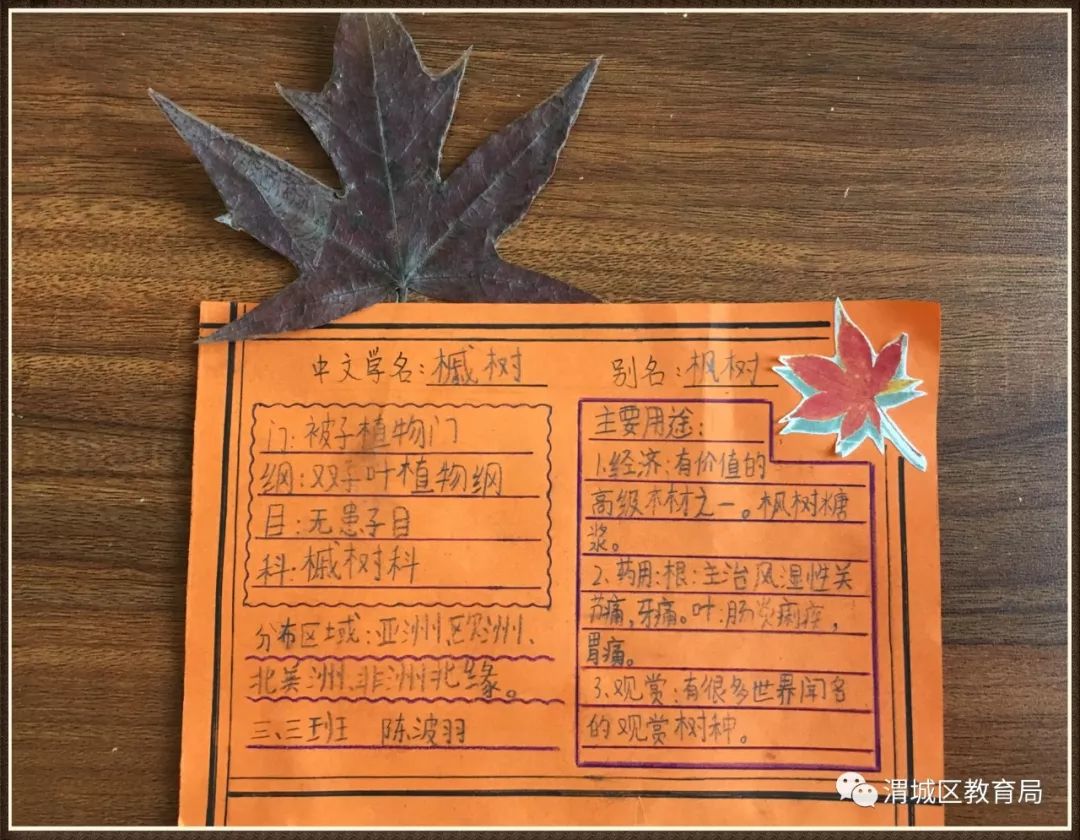 中文学名:槭树
别名:枫树
门:被子植物门
纲:双子叶植物纲
目:无患子目
科:槭树科
分布区域:亚洲、欧洲、
北美洲、非洲北缘。
三、三班 陈波羽
主要用途:
1.经济:有价值的
高级木材之一。枫树糖
浆。
2.药用:根:主治风湿性关
节痛,牙痛。叶:肠炎痢疾,
胃痛。
3.观赏:有很多世界闻名
的观赏树种。
渭城区教育局